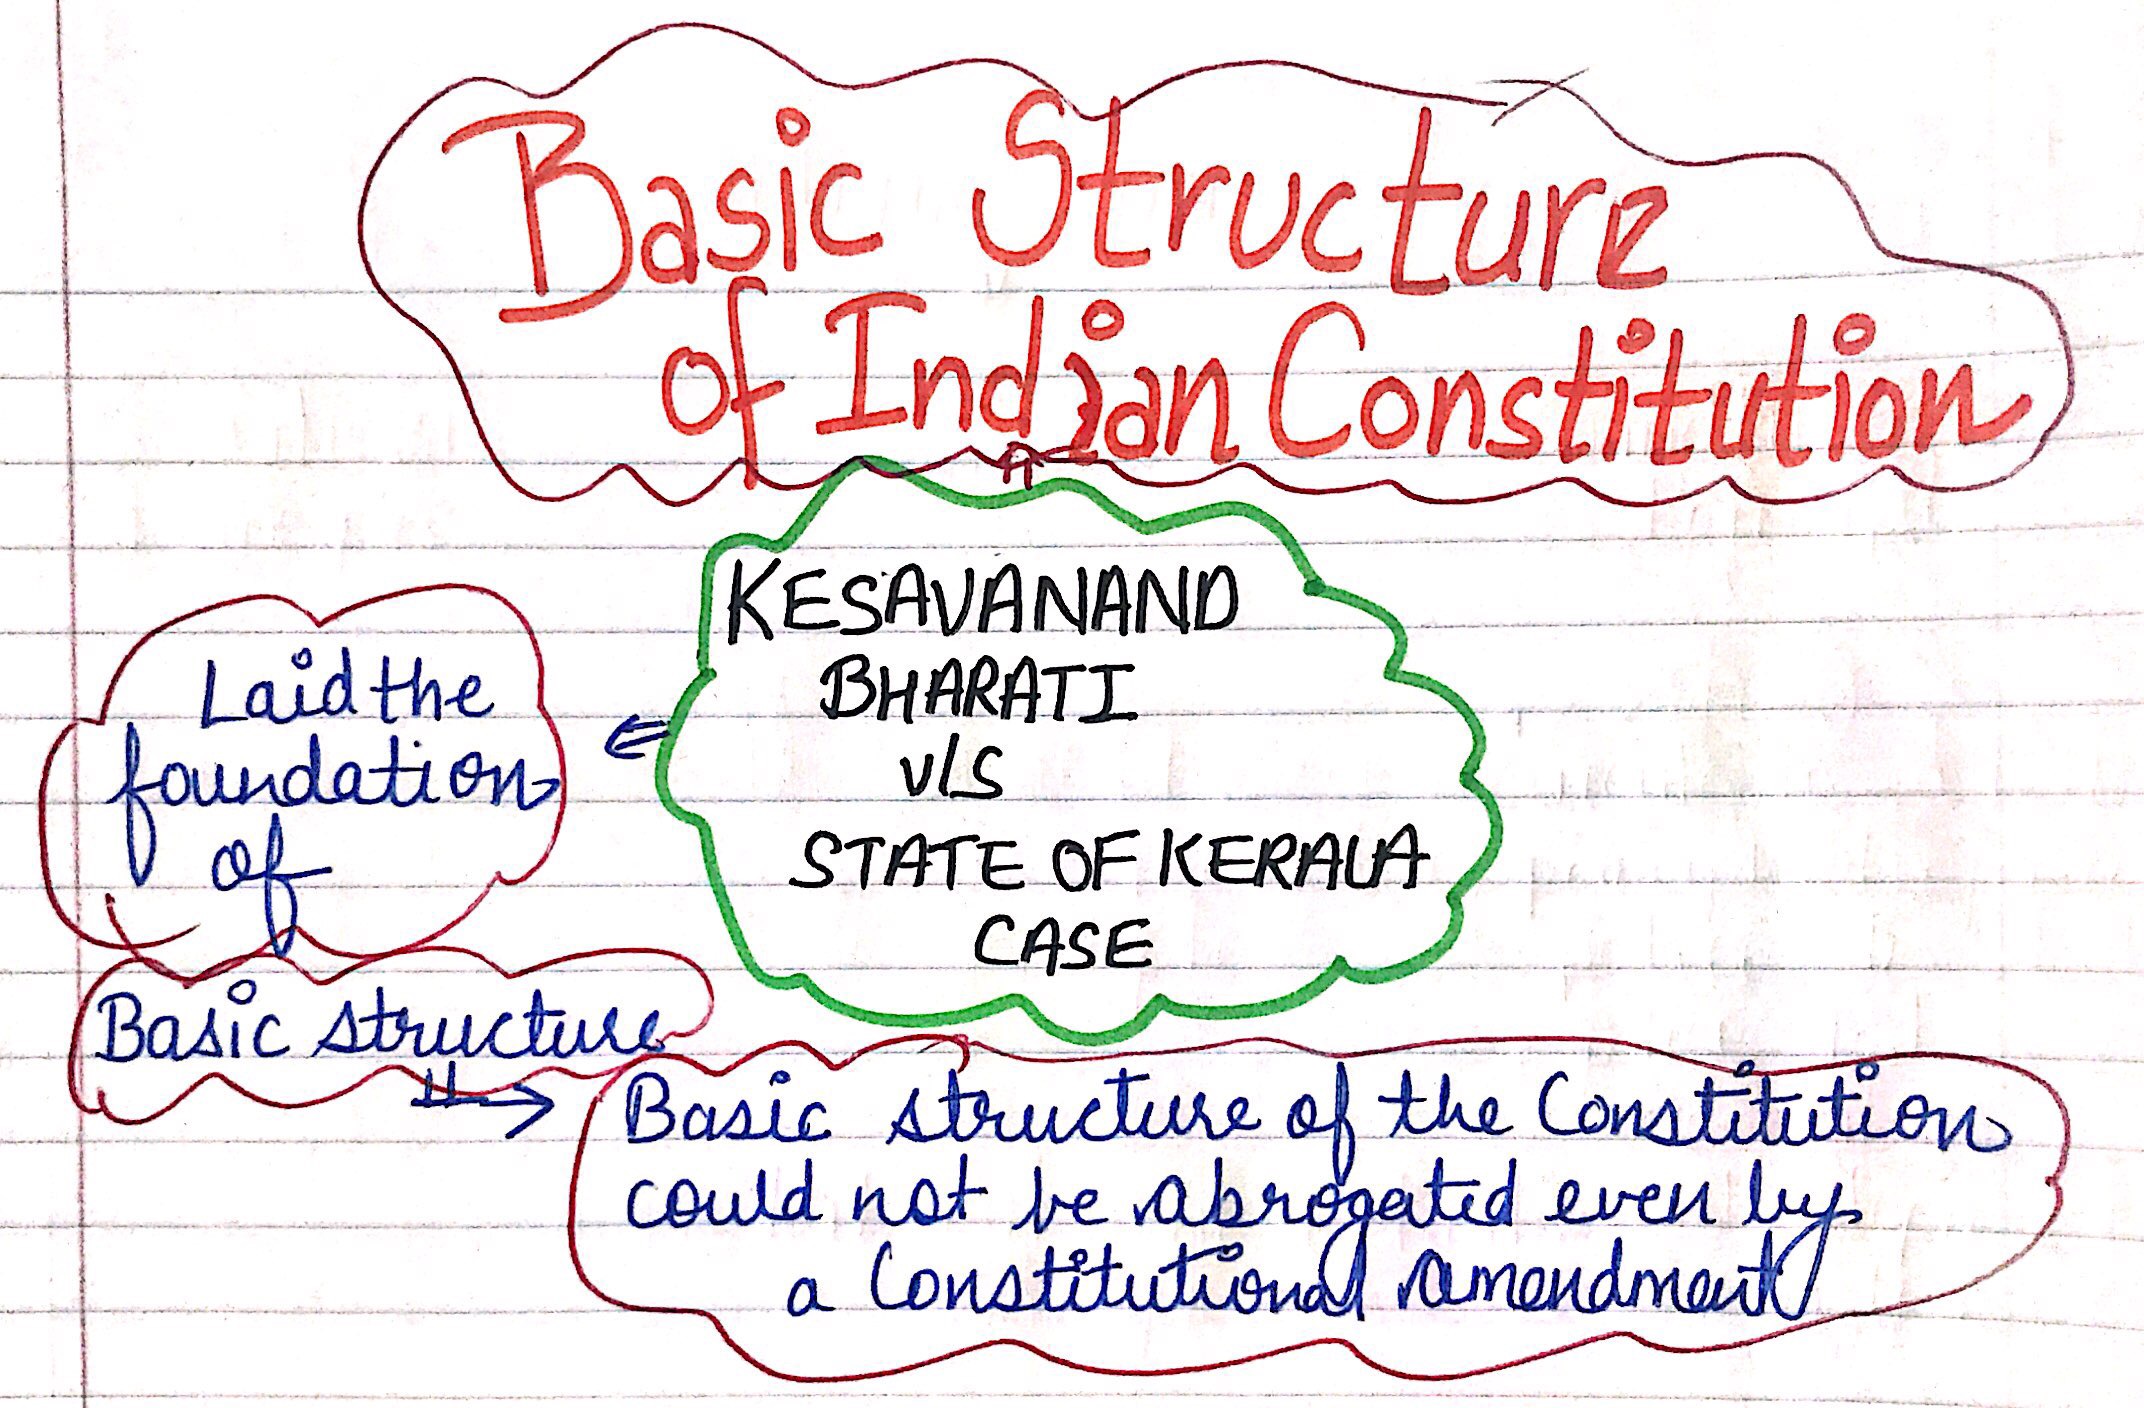 Basic Structure
of Indian Constitution
KESAVANAND
BHARATI
v/s
STATE OF KERALA
CASE
Laid the
foundation
of
Basic structure
Basic structure of the Constitution
could not be abrogated even by
a Constitutional amendment